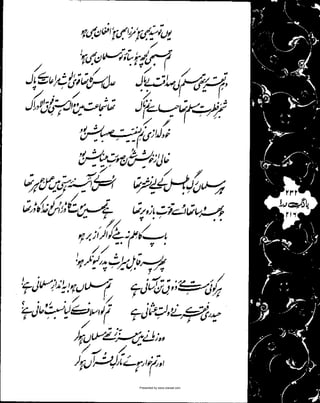 یوں تو سیّد بھی ہو، مرزا بھی ہو، افغان بھی ہو
تم سبھی کچھ ہو، بتاؤ تو مسلمان بھی ہو؟
دمِ تقریر تھی مسلم کی صداقت بے باک عدل اس کا تھا قوی، لوثِ مراعات سے پاک
شجرِ فطرتِ مسلم تھا حیا سے نم ناک تھا شجاعت میں وہ اک ہستیِ فوق الادراک
خود گدازی نمِ کیفیتِ صہبایش بود
خالی از خویش شدن صورتِ مینایش بود
ہر مسلماں رگِ باطل کے لیے نشتر تھا اس کے آئینۂ ہستی میں عمل جوہر تھا
جو بھروسا تھا اسے قوّتِ بازو پر تھا ہے تمھیں موت کا ڈر، اس کو خدا کا ڈر تھا
باپ کا علم نہ بیٹے کو اگر ازبر ہو
پھر پسر قابلِ میراثِ پدر کیونکر ہو!
ہر کوئی مستِ مئے ذوقِ تن آسانی ہے تم مسلماں ہو؟ یہ اندازِ مسلمانی ہے؟
حیدری فقر ہے، نے دولتِ عثمانی ہے تم کو اسلاف سے کیا نسبتِ روحانی ہے؟
وہ زمانے میں معزّز تھے مسلماں ہو کر
اور تم خوار ہوئے تارکِ قرآں ہو کر
۲۳۲
بانگِ درا
۲۱۶
Presented by www.ziaraat.com